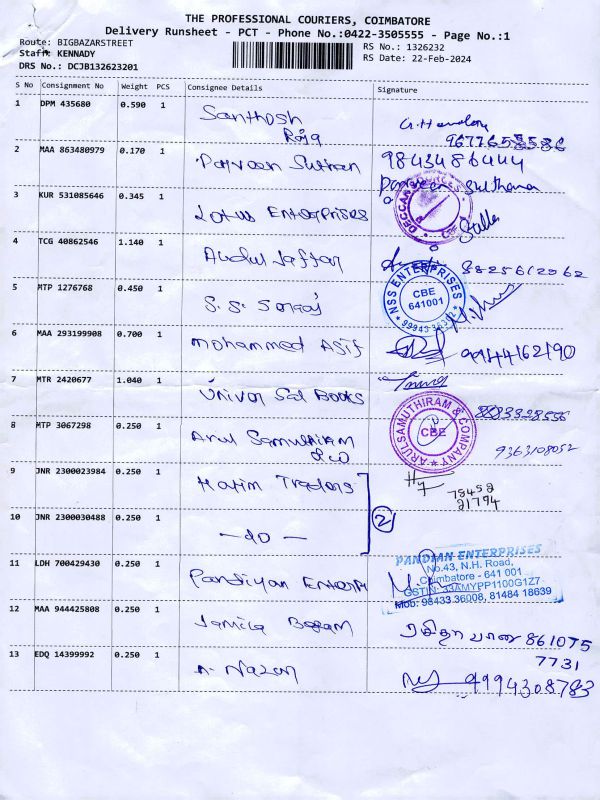 THE PROFESSIONAL COURIERS, COIMBATORE
Delivery Runsheet - PCT - Phone No.:0422-3505555 - Page No.:1
Route: BIGBAZARSTREET RS No.: 1326232
Staff: KENNADY RS Date: 22-Feb-2024
DRS No.: DCJB132623201
S No Consignment No Weight PCS Consignee Details Signature
1 DPM 435680 0.590 1 Santhosh
Raja
2 MAA 863480979 0.170 1 Parveen Sulthan 9843486444
Parveen Sulthana
3 KUR 531085646 0.345 1 Lotus Enterprises
4 TCG 40862546 1.140 1 Abdul Jaffar 8825612062
5 MTP 1276768 0.450 1 S.S. Songs NSS ENTERPRISES
CBE
641001
6 MAA 293199908 0.700 1 Mohammed Asif 9944162190
7 MTR 2420677 1.040 1 Univer Sal Books
8 MTP 3067298 0.250 1 Arul Samuthiram
& co
ARULSAMUTHIRAM & COMPANY
CBE
9363108052
9 JNR 2300023984 0.250 1 Hatim Traders 78452
21794
10 JNR 2300030488 0.250 1 — do — 2
11 LDH 700429430 0.250 1 Pandiyan Enterpri
PANDIAN ENTERPRISES
No.43, N.H. Road,
Coimbatore - 641 001
GSTIN: 33AMYPP1100G1Z7
Mob: 98433 36008, 81484 18639
12 MAA 944425808 0.250 1 Jamila Begam 861075
7731
13 EDQ 14399992 0.250 1 A. Nazar 9994308783